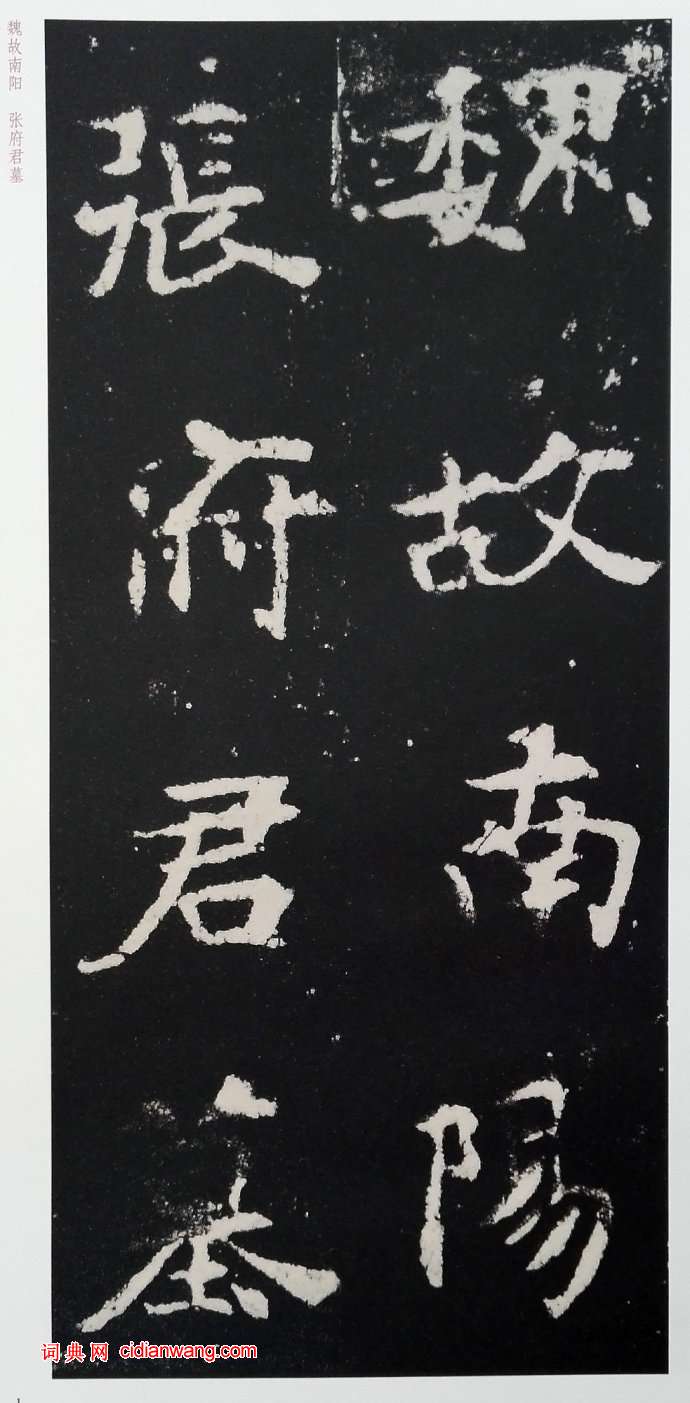 魏故南阳 张府君墓
魏故南陽
張府君墓
词典网 cidianwang.com
1